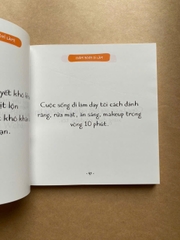 yết khó
lột lớn
khó khă
an.
Cuộc sống đi làm dạy tôi cách đánh
răng, rửa mặt, ăn sáng, makeup trong
vòng 10 phút.